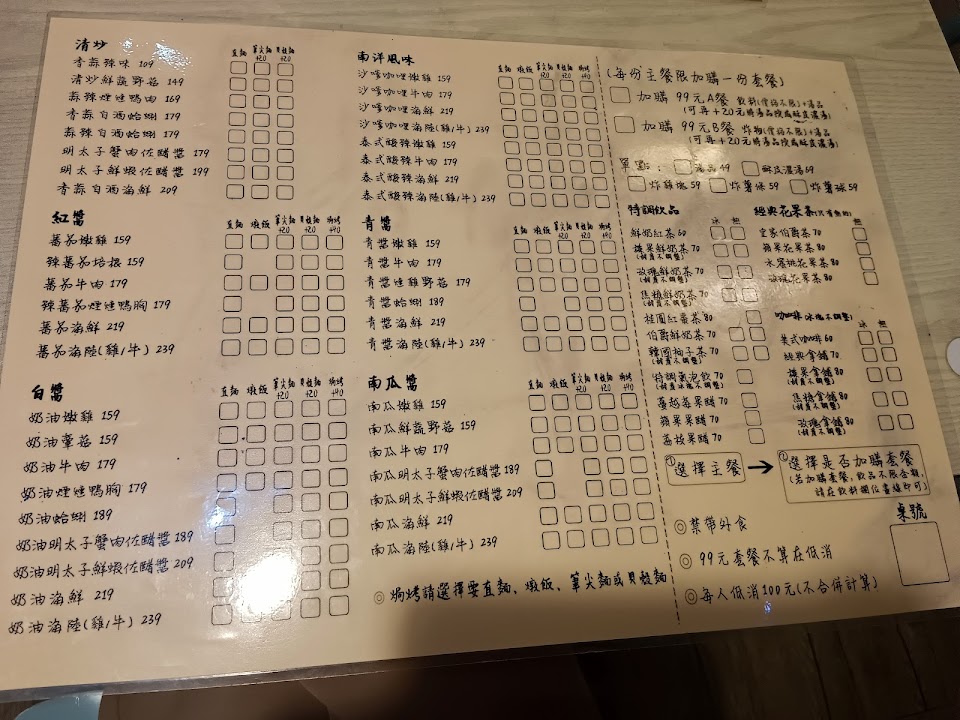 清炒 直麵 筆尖麵+20 貝殼麵+20
香蒜辣味 109
清炒鮮蔬野菇 149
蒜辣煙燻鴨肉 169
香蒜白酒蛤蜊 179
蒜辣白酒蛤蜊 179
明太子蟹肉佐醋醬 179
明太子鮮蝦佐醋醬 199
香蒜白酒海鮮 209
紅醬 直麵 燉飯 筆尖麵+20 貝殼麵+20 焗烤+40
蕃茄嫩雞 159
辣蕃茄培根 159
蕃茄牛肉 179
辣蕃茄煙燻鴨胸 179
蕃茄海鮮 219
蕃茄海陸(雞/牛) 239
白醬 直麵 燉飯 筆尖麵+20 貝殼麵+20 焗烤+40
奶油嫩雞 159
奶油蕈菇 159
奶油牛肉 179
奶油煙燻鴨胸 179
奶油蛤蜊 189
奶油明太子蟹肉佐醋醬 189
奶油明太子鮮蝦佐醋醬 209
奶油海鮮 219
奶油海陸(雞/牛) 239
南洋風味 直麵 燉飯 筆尖麵+20 貝殼麵+20 焗烤+40
沙嗲咖哩嫩雞 159
沙嗲咖哩牛肉 179
沙嗲咖哩海鮮 219
沙嗲咖哩海陸(雞/牛) 239
泰式酸辣嫩雞 159
泰式酸辣牛肉 179
泰式酸辣海鮮 219
泰式酸辣海陸(雞/牛) 239
青醬 直麵 燉飯 筆尖麵+20 貝殼麵+20 焗烤+40
青醬嫩雞 159
青醬牛肉 179
青醬燻雞野菇 179
青醬蛤蜊 189
青醬海鮮 219
青醬海陸(雞/牛) 239
南瓜醬 直麵 燉飯 筆尖麵+20 貝殼麵+20 焗烤+40
南瓜嫩雞 159
南瓜鮮蔬野菇 159
南瓜牛肉 179
南瓜明太子蟹肉佐醋醬 189
南瓜明太子鮮蝦佐醋醬 209
南瓜海鮮 219
南瓜海陸(雞/牛) 239
◎焗烤請選擇要直麵、燉飯、筆尖麵或貝殼麵
(每份主餐限加購一份套餐)
加購 99元A餐 飲料(價格不限)+湯品
(可再+20元將湯品換成酥皮濃湯)
加購 99元B餐 炸物(價格不限)+湯品
(可再+20元將湯品換成酥皮濃湯)
單點: 湯品49 酥皮濃湯69
炸雞塊59 炸薯條59 炸薯球59
特調飲品 冰 熱
鮮奶紅茶 60
榛果鮮奶茶 70
(甜度不調整)
玫瑰鮮奶茶 70
(甜度不調整)
焦糖鮮奶茶 70
(甜度不調整)
桂圓紅棗茶 80
伯爵鮮奶茶 70
韓國柚子茶 70
(甜度不調整)
特調氣泡飲 70
(甜度冰塊不調整)
蔓越莓果醋 70
蘋果果醋 70
荔枝果醋 70
經典花果茶 熱
皇家伯爵茶 70
蘋果花果茶 80
水蜜桃花果茶 80
玫瑰花果茶 80
咖啡(冰塊不調整) 冰 熱
美式咖啡 60
經典拿鐵 70
榛果拿鐵 80
(甜度不調整)
焦糖拿鐵 80
(甜度不調整)
玫瑰拿鐵 80
(甜度不調整)
①選擇主餐 → ①選擇是否加購套餐
(若加購套餐,飲品不限金額,
請在飲料欄位畫線即可)
◎禁帶外食
◎99元套餐不算在低消
◎每人低消100元(不合併計算)
桌號